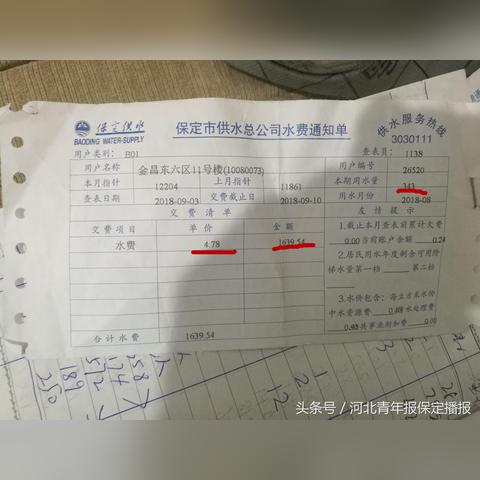 保定供水
BAODING WATER-SUPPLY
保定市供水总公司水费通知单
供水服务热线
3030111
用户类别: B01
查表员: 1138
用户名称 金昌东六区11号楼(10080073) 用户编号 26520
本月指针 12204 上月指针 11861 本期用水量 343
查表日期 2018-09-03 交费截止日 2018-09-10 用水月份 2018-08
交费清单 友情提示
交费项目 单价 金额
水费 4.78 1639.54
1.截止本月查表前累计欠费
0.00当前账户金额 0.24
2.居民用水年度剩余可用阶
梯水量第一档 第二档
3.水价包含:每立方米水价
中水资源费 污水处理费
0.95共事业附加费 0.00
合计水费 1639.54
258
174
572
189
250
1 2
12
头条号/河北青年报保定播报